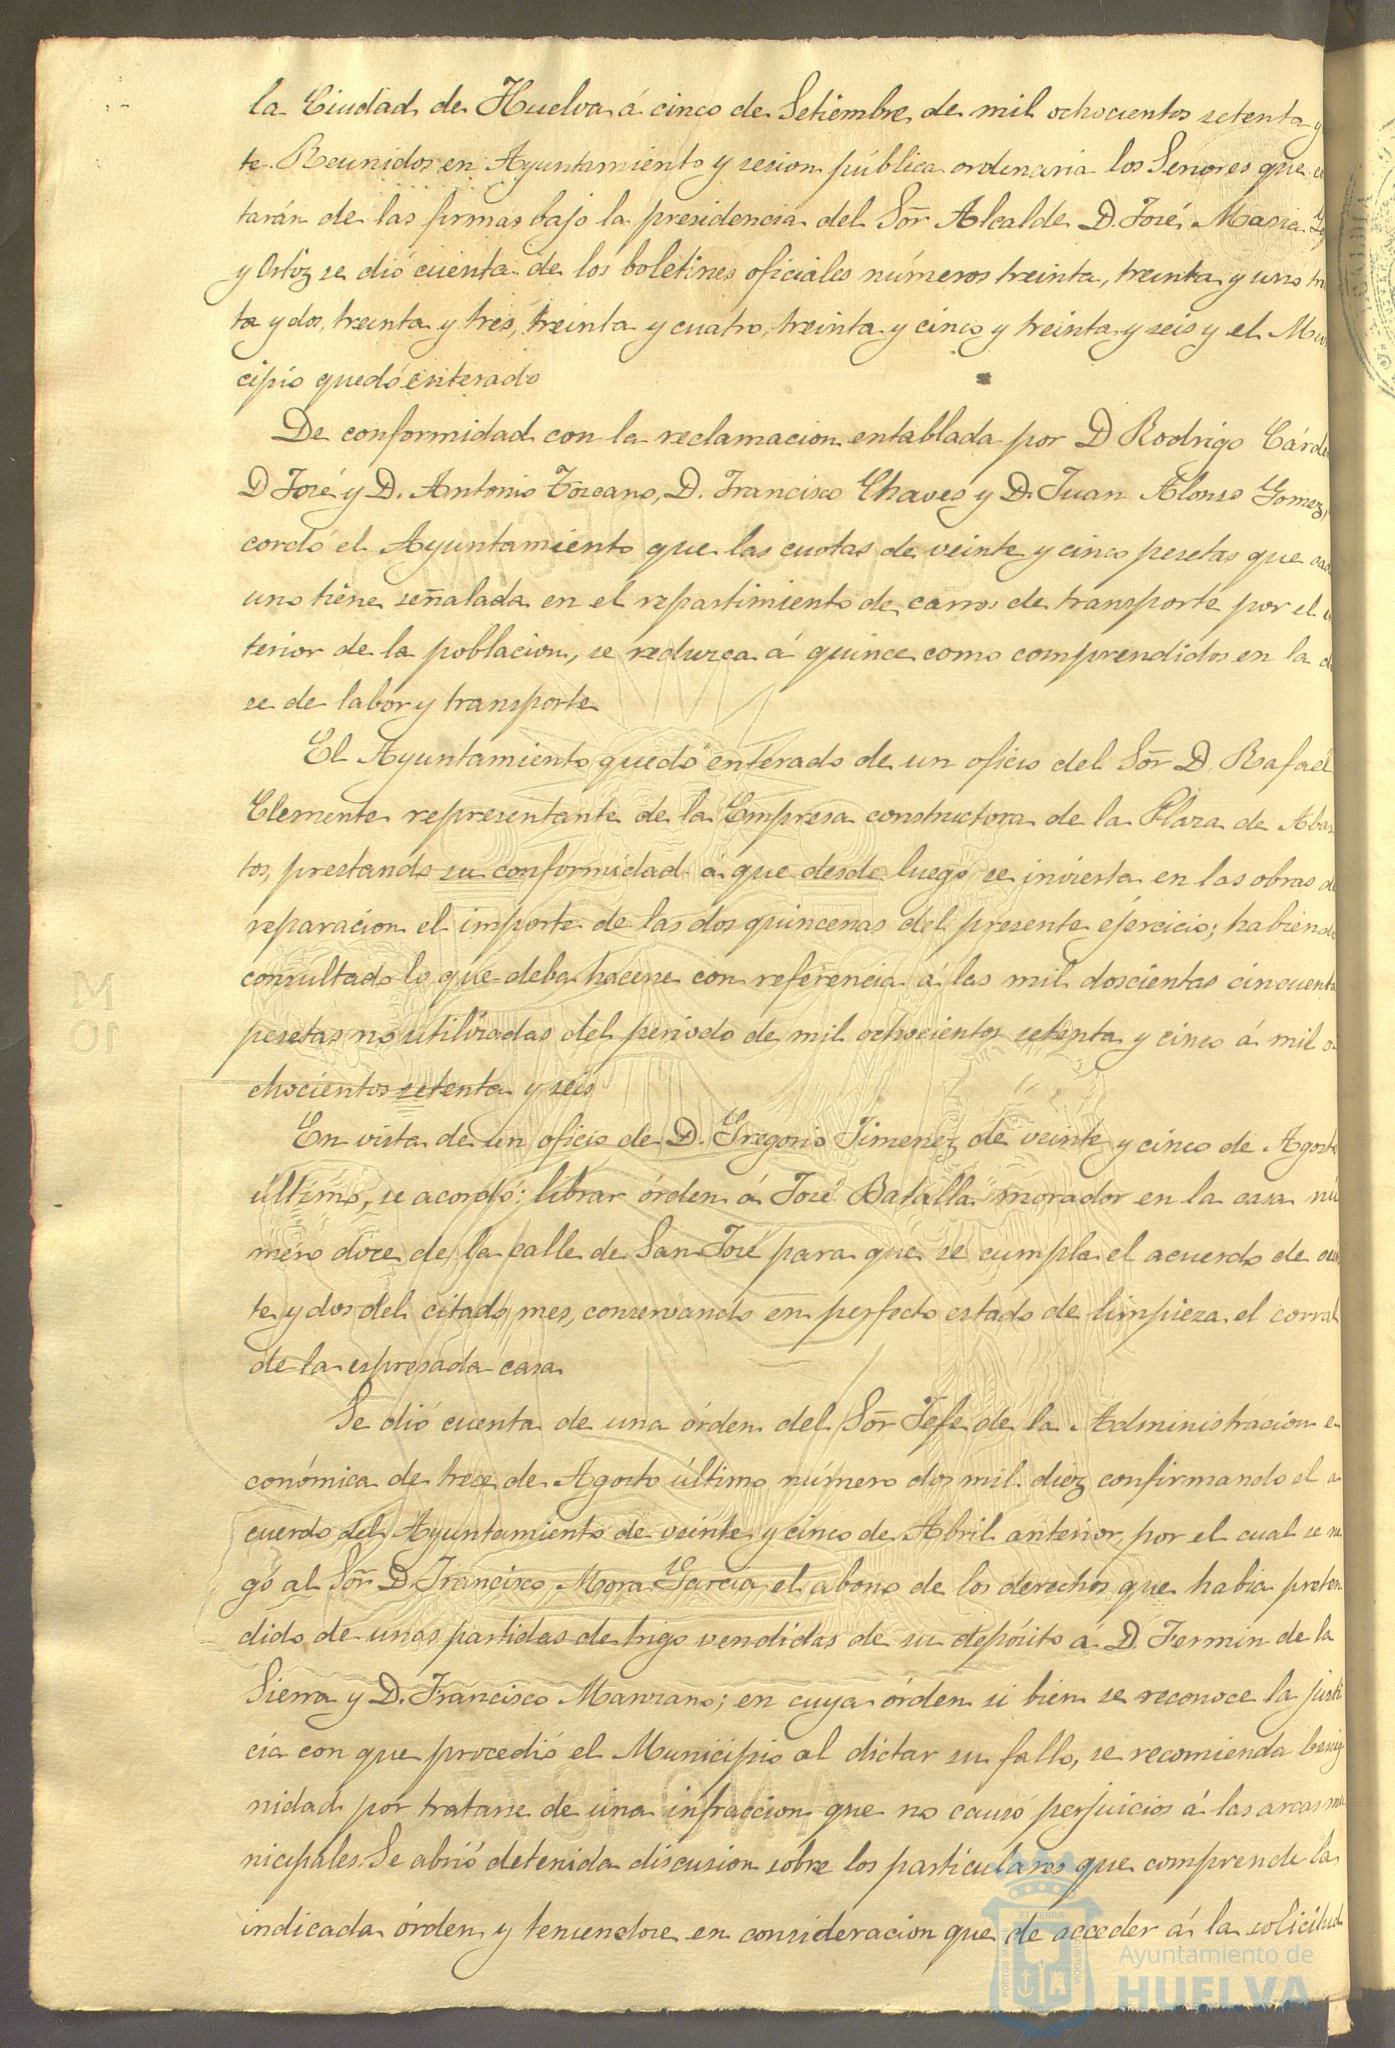 la Ciudad de Huelva á cinco de Setiembre de mil ochocientos setenta y
te. Reunidos en Ayuntamiento y sesion pública ordinaria los Señores que
tarán de las firmas bajo la presidencia del Sõr Alcalde D. José Maria
y Ortiz se dió cuenta de los boletines oficiales números treinta, treinta y uno
ta y dos, treinta y tres, treinta y cuatro, treinta y cinco y treinta y seis y el Mu
cipio quedó enterado
De conformidad con la reclamacion entablada por D Rodrigo Cárde
D José y D. Antonio Toscano, D. Francisco Chaves y D. Juan Alonso Gomez,
cordó el Ayuntamiento que las cuotas de veinte y cinco pesetas que cada
uno tiene señalada en el repartimiento de carros de transporte por el
terior de la poblacion, se reduzca á quince como comprendidos en la
se de labor y transporte
El Ayuntamiento quedó enterado de un oficio del Sõr D. Rafaél
Clemente representante de la Empresa constructora de la Plaza de Abas
tos, prestando su conformidad á que desde luego se invierta en las obras de
reparacion el importe de las dos quincenas del presente ejercicio; habiendo
consultado lo que deba hacerse con referencia á las mil doscientas cincuenta
pesetas no utilizadas del periodo de mil ochocientos setenta y cinco á mil o
chocientos setenta y seis
En vista de un oficio de D. Gregorio Jimenez de veinte y cinco de Agosto
último, se acordó: librar órden á José Batalla morador en la casa nú
mero doce de la calle de San José para que se cumpla el acuerdo de vein
te y dos del citado mes, conservando en perfecto estado de limpieza el corral
de la espresada casa
Se dió cuenta de una órden del Sõr Jefe de la Administracion e
conómica de trece de Agosto último número dos mil diez confirmando el a
cuerdo del Ayuntamiento de veinte y cinco de Abril anterior, por el cual se ne
gó al Sõr D. Francisco Mora Garcia el abono de los derechos que habia preten
dido de unas partidas de trigo vendidas de su depósito á D. Fermin de la
Sierra y D. Francisco Manzano; en cuya órden si bien se reconoce la justi
cia con que procedió el Municipio al dictar su fallo, se recomienda benig
nidad por tratarse de una infraccion que no causó perjuicios á las arcas mu
nicipales. Se abrió detenida discusion sobre los particulares que comprende la
indicada órden y teniendose en consideracion que de acceder á la solicitud
Ayuntamiento de
HUELVA